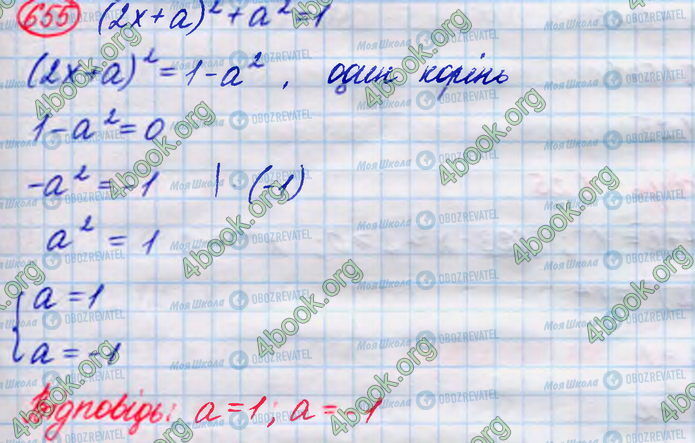 655 (2x+a)²+a²=1
(2x+a)²=1-a², один корінь
1-a²=0
-a²=-1 | (-1)
a²=1
{a=1
a=-1
Відповідь: a=1; a=-1
4book.org
Моя Школа OBOZREVATEL